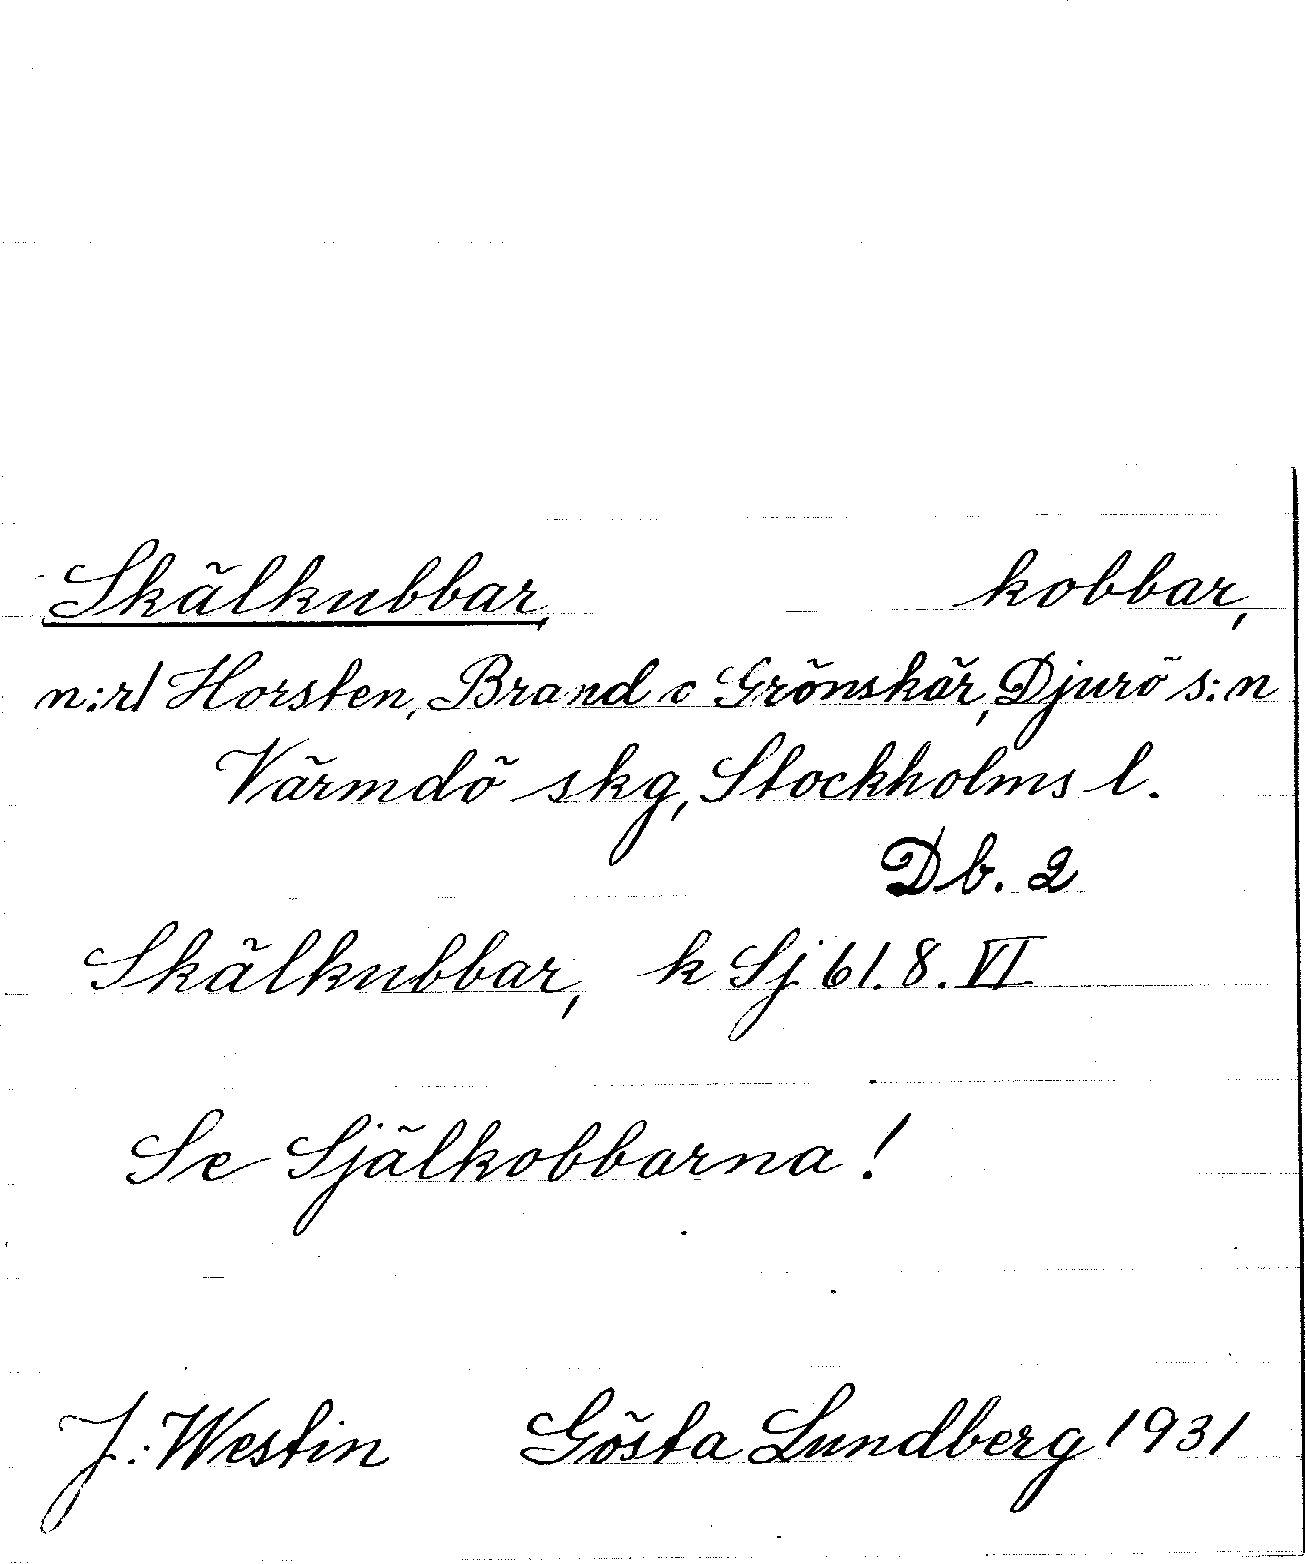 Skälkubbar, kobbar,
n:r1 Horsten, Brand o Grönskär, Djurö s:n
Värmdö skg, Stockholms l.
Db. 2
Skälkubbar, k Sj 61.8.VI
Se Själkobbarna!
J.: Westin Gösta Lundberg 1931